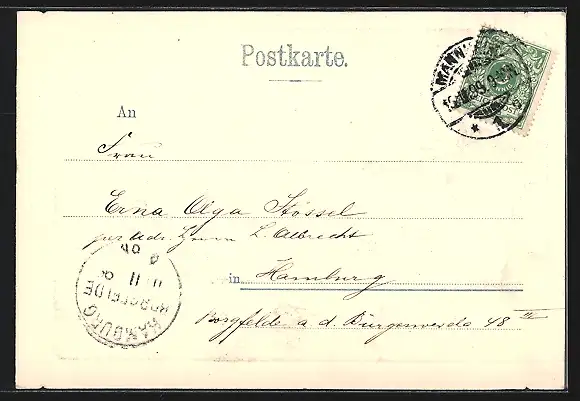 Postkarte.
An
Frau
Erna Olga Stössel
per Adr. Herrn L. Albrecht
in Hamburg
Borgfelde a. d. Bürgerweide 48 III
MANNH
HAMBURG
BORGFELDE
11